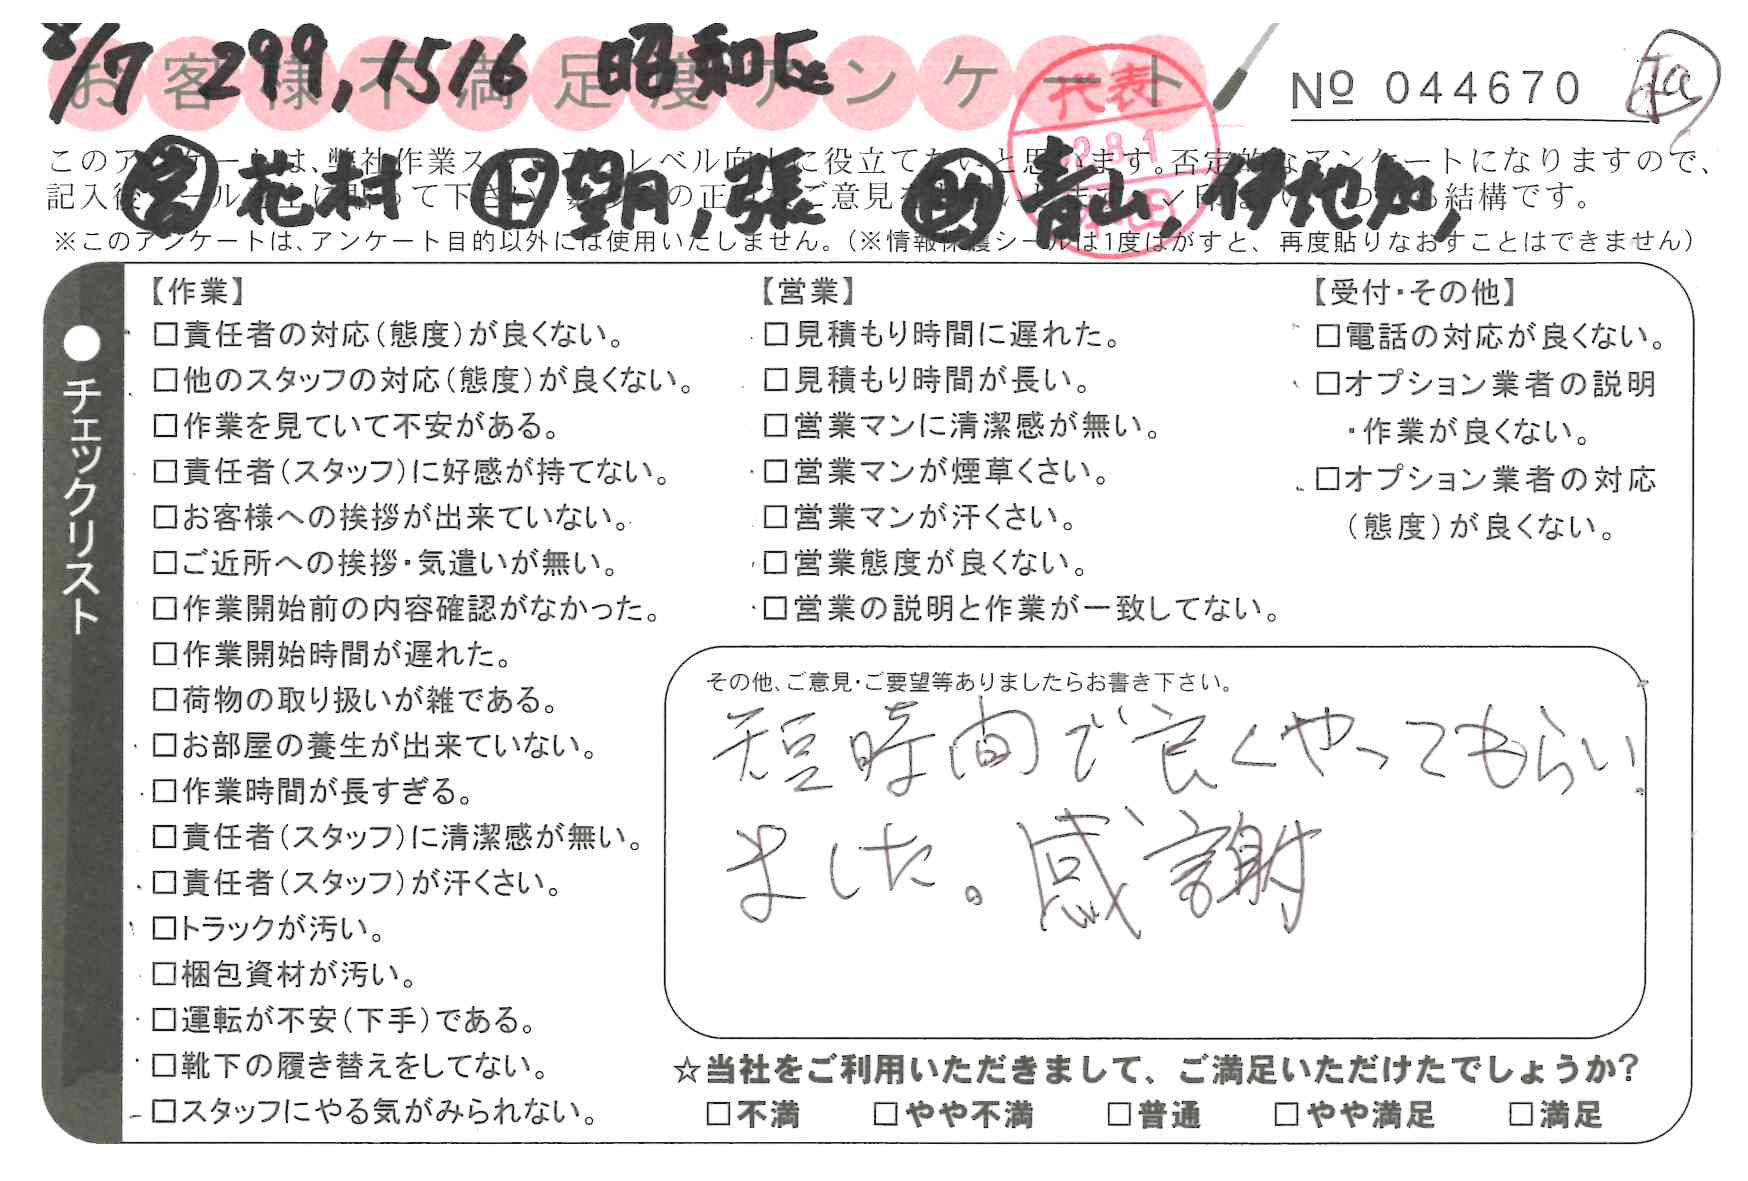 8/7 299,1516 昭和区
お客様不満足度アンケート
№ 044670
代表
2.8.1
営 花村 ド 望月,張 助 青山,伊地知,
このアンケートは、弊社作業スタッフのレベル向上に役立てたいと思います。否定的なアンケートになりますので、
記入後シールを上に貼って下さい。 の正 ご意見を でも結構です。
※このアンケートは、アンケート目的以外には使用いたしません。(※情報保護シールは1度はがすと、再度貼りなおすことはできません)
●チェックリスト
【作業】
□責任者の対応(態度)が良くない。
□他のスタッフの対応(態度)が良くない。
□作業を見ていて不安がある。
□責任者(スタッフ)に好感が持てない。
□お客様への挨拶が出来ていない。
□ご近所への挨拶・気遣いが無い。
□作業開始前の内容確認がなかった。
□作業開始時間が遅れた。
□荷物の取り扱いが雑である。
□お部屋の養生が出来ていない。
□作業時間が長すぎる。
□責任者(スタッフ)に清潔感が無い。
□責任者(スタッフ)が汗くさい。
□トラックが汚い。
□梱包資材が汚い。
□運転が不安(下手)である。
□靴下の履き替えをしてない。
□スタッフにやる気がみられない。
【営業】
□見積もり時間に遅れた。
□見積もり時間が長い。
□営業マンに清潔感が無い。
□営業マンが煙草くさい。
□営業マンが汗くさい。
□営業態度が良くない。
□営業の説明と作業が一致してない。
【受付・その他】
□電話の対応が良くない。
□オプション業者の説明
・作業が良くない。
□オプション業者の対応
(態度)が良くない。
その他、ご意見・ご要望等ありましたらお書き下さい。
短時間で良くやってもらい
ました。感謝
☆当社をご利用いただきまして、ご満足いただけたでしょうか?
□不満 □やや不満 □普通 □やや満足 □満足